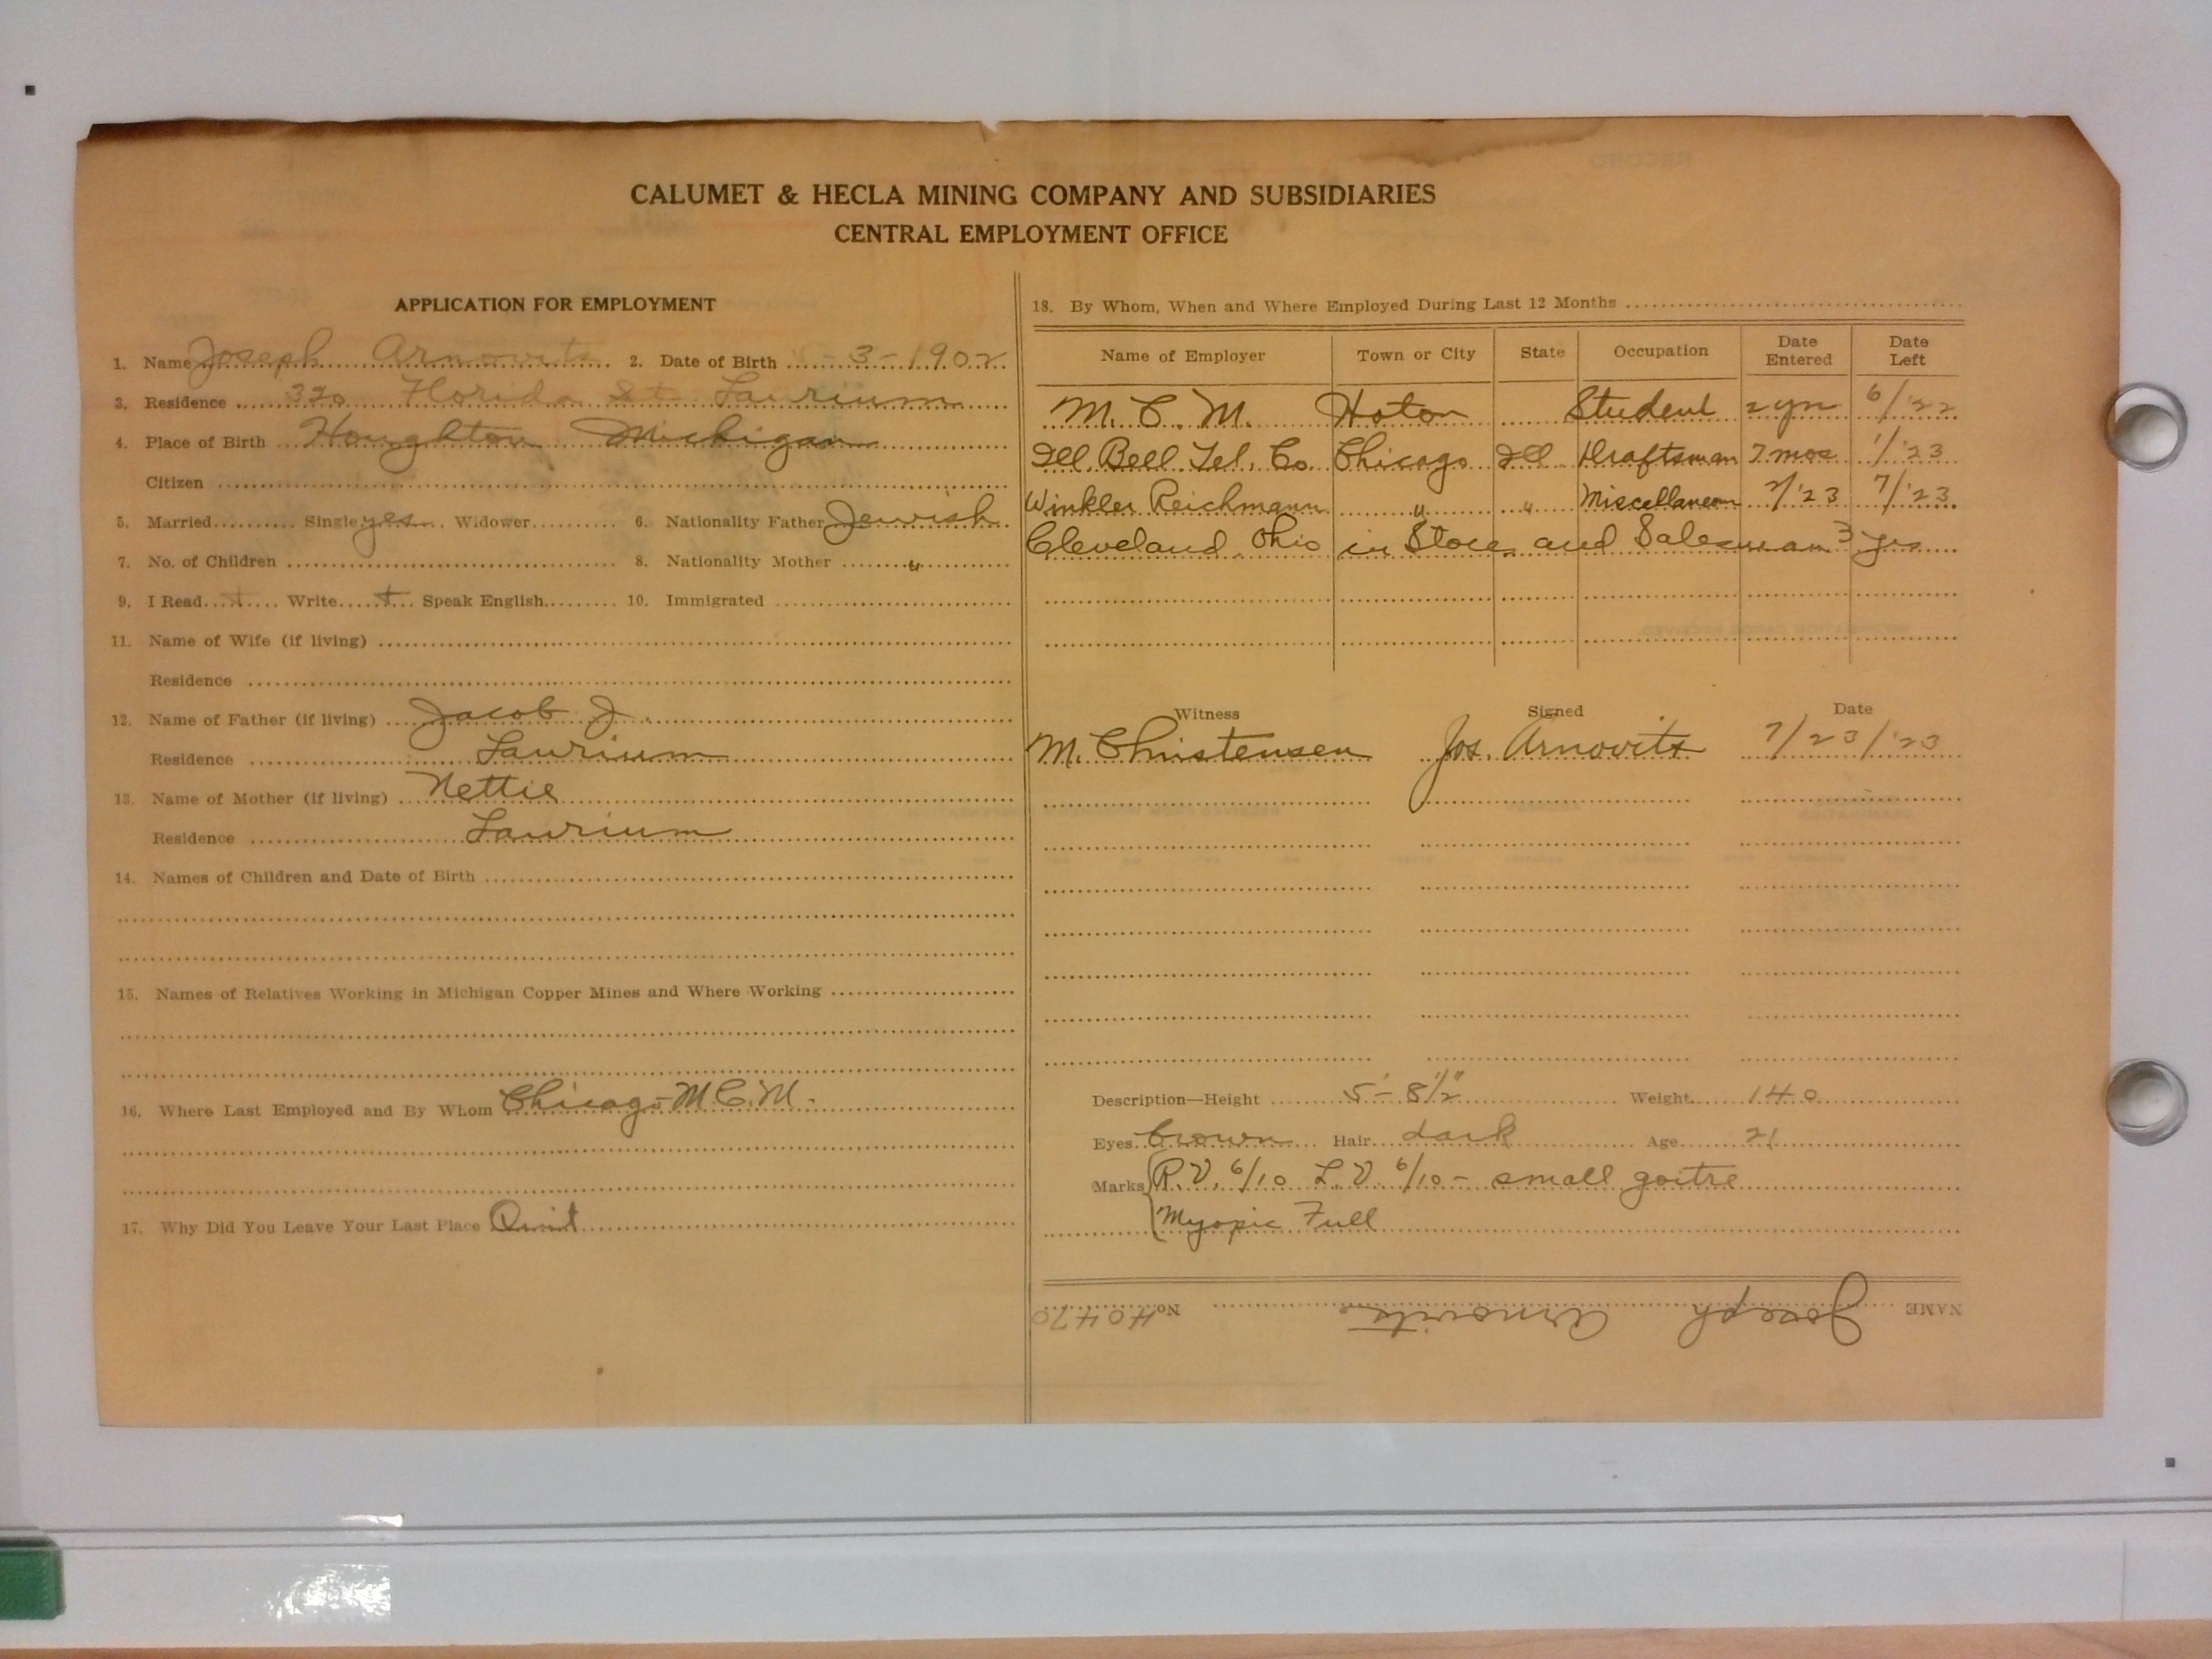 CALUMET & HECLA MINING COMPANY AND SUBSIDIARIES
CENTRAL EMPLOYMENT OFFICE
APPLICATION FOR EMPLOYMENT
1. Name Joseph Arnovitz 2. Date of Birth 3-1902
3. Residence 320 Florida St Laurium
4. Place of Birth Houghton Michigan
Citizen
5. Married Single yes Widower 6. Nationality Father Jewish
7. No. of Children 8. Nationality Mother "
9. I Read + Write + Speak English 10. Immigrated
11. Name of Wife (if living)
Residence
12. Name of Father (if living) Jacob J.
Residence Laurium
13. Name of Mother (if living) Nettie
Residence Laurium
14. Names of Children and Date of Birth
15. Names of Relatives Working in Michigan Copper Mines and Where Working
16. Where Last Employed and By Whom Chicago-M.C.M.
17. Why Did You Leave Your Last Place Quit
18. By Whom, When and Where Employed During Last 12 Months
Name of Employer Town or City State Occupation Date Entered Date Left
M.C.M. Hoton Student 2 yrs 6/'22
Ill Bell Tel. Co. Chicago Ill Draftsman 7 mos 1/'23
Winkler Reichmann " " Miscellaneous 2/'23 7/'23
Cleveland Ohio in Stores and Salesman 3 yrs
Witness Signed Date
M. Christensen Jos. Arnovitz 7/23/'23
Description—Height 5'-8½" Weight 140
Eyes brown Hair dark Age 21
Marks R.V. 6/10 L.V. 6/10 - small goitre
Myopic Full
NAME Joseph Arnovitz No. 40470